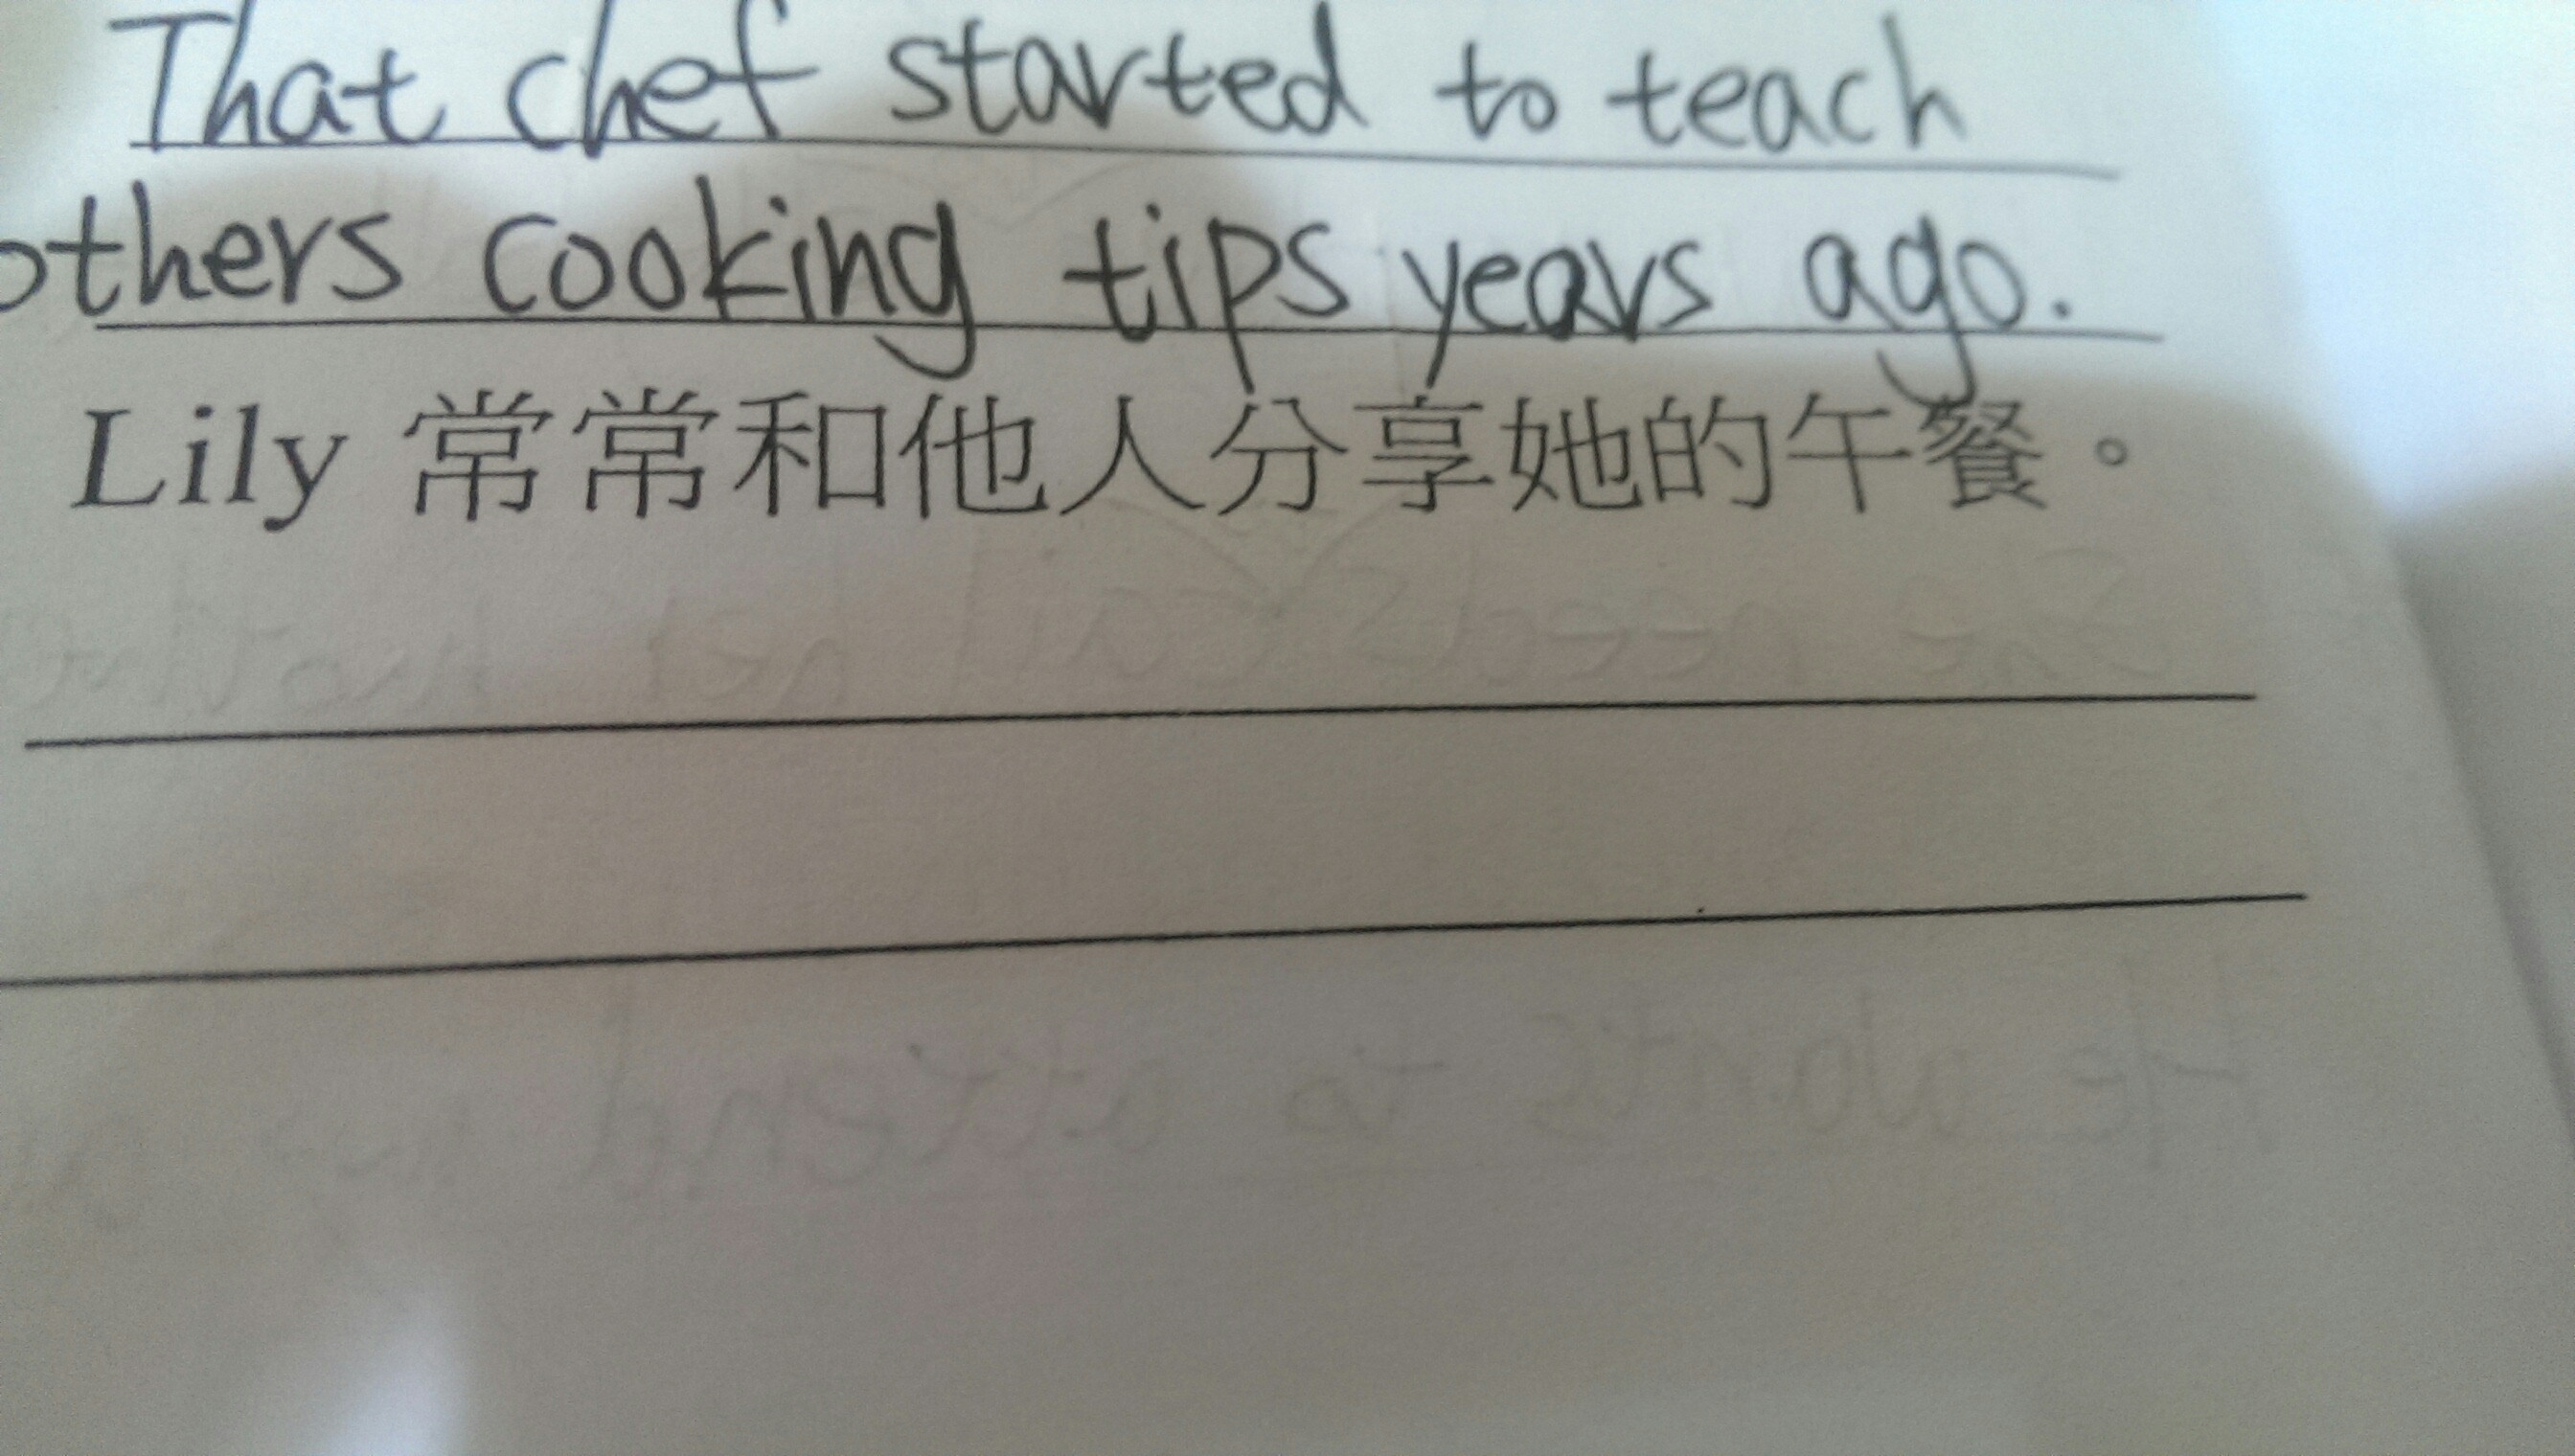 That chef started to teach
others cooking tips years ago.
Lily 常常和他人分享她的午餐。